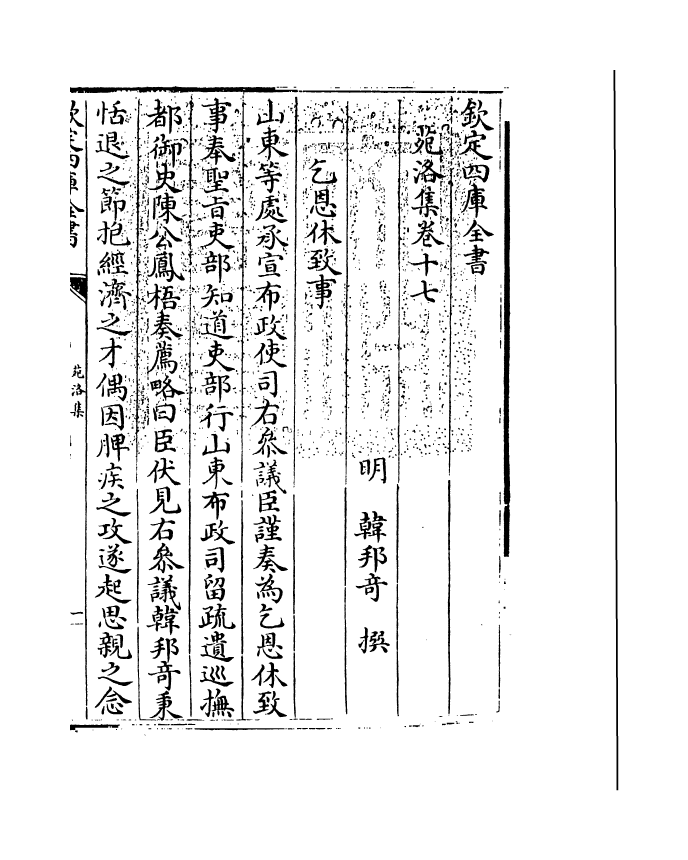 欽定四庫全書
苑洛集卷十七
明　韓邦竒　撰
乞恩休致事
山東等處承宣布政使司右叅議臣謹奏為乞恩休致
事奉聖旨吏部知道吏部行山東布政司留疏遺巡撫
都御史陳公鳳梧奏薦略曰臣伏見右叅議韓邦竒秉
恬退之節抱經濟之才偶因脾疾之攻遂起思親之念
欽定四庫全書
苑洛集
一